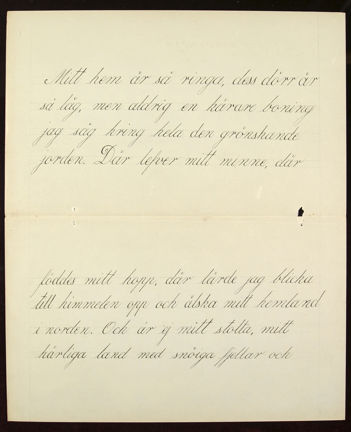 Mitt hem är så ringa, dess dörr är
så låg, men aldrig en kärare boning
jag såg kring hela den grönskande
jorden. Där lefver mitt minne, där
föddes mitt hopp, där lärde jag blicka
till himmelen opp och älska mitt hemland
i norden. Och är ej mitt stolta, mitt
härliga land med snöiga fjellar och